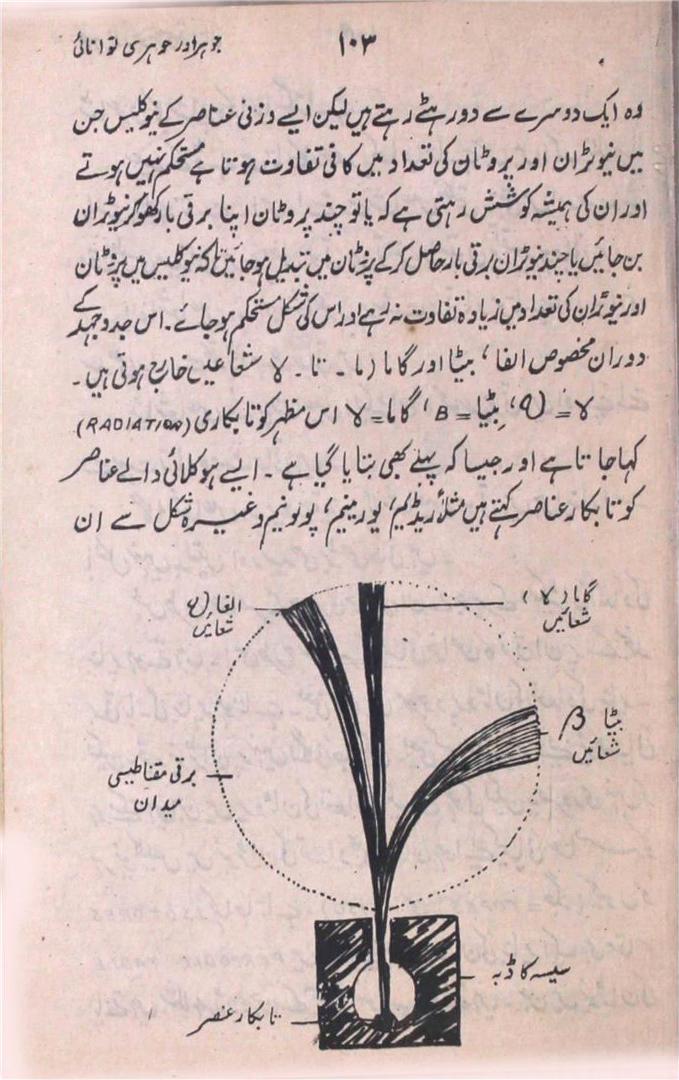 جوہر اور جوہری توانائی
۱۰۳
وہ ایک دوسرے سے دور ہٹے رہتے ہیں لیکن ایسے وزنی عناصر کے نیوکلیس جن
میں نیوٹران اور پروٹان کی تعداد میں کافی تفاوت ہوتا ہے مستحکم نہیں ہوتے
اور ان کی ہمیشہ کوشش رہتی ہے کہ یا تو چند پروٹان اپنا برقی بار کھو کر نیوٹران
بن جائیں یا چند نیوٹران برقی بار حاصل کر کے پروٹان میں تبدیل ہو جائیں تاکہ نیوکلیس میں پروٹان
اور نیوٹران کی تعداد میں زیادہ تفاوت نہ رہے اور اس کی شکل مستحکم ہو جائے۔ اس جدوجہد کے
دوران مخصوص الفا، بیٹا اور گاما (ما۔ تا۔ لا شعاعیں خارج ہوتی ہیں۔
لا = (q)، بیٹا = B، گاما = لا اس مظہر کو تابکاری (RADIATION)
کہا جاتا ہے اور جیسا کہ پہلے بھی بتایا گیا ہے۔ ایسے ہوکلائی والے عناصر
کو تابکار عناصر کہتے ہیں مثلاً ریڈیم، یورینیم، پولونیم وغیرہ شکل سے ان
گاما (لا)
شعائیں
الفا (q)
شعائیں
بیٹا β
شعائیں
برقی مقناطیسی
میدان
سیسہ کا ڈبہ
تابکار عنصر